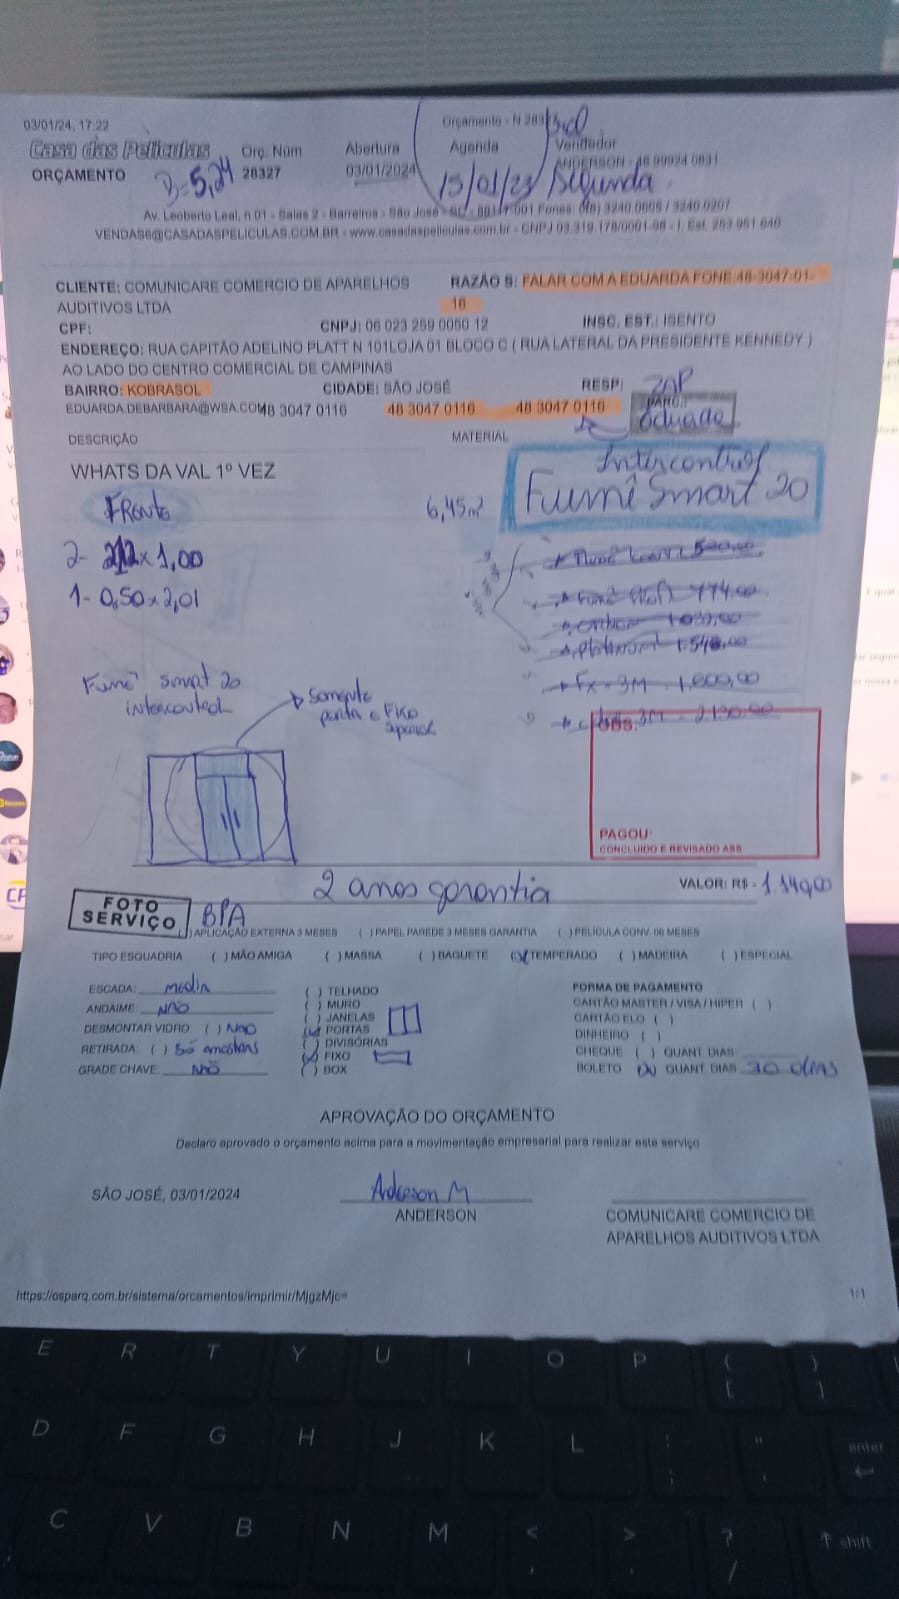 03/01/24, 17:22
Orçamento - N 283
Casa das Películas
Orç. Núm
Abertura
Agenda
Vendedor
ORÇAMENTO
B=5,24
28327
03/01/2024
15/01/23 Segunda
ANDERSON - 48 99924 0831
Av. Leoberto Leal, n 01 - Salas 2 - Barreiros - São José - SC - 88117-001 Fones: (48) 3240.0606 / 3240.0207
VENDAS6@CASADASPELICULAS.COM.BR - www.casadaspeliculas.com.br - CNPJ 03.319.178/0001-98 - I. Est. 253.951.640
CLIENTE: COMUNICARE COMERCIO DE APARELHOS AUDITIVOS LTDA
RAZÃO S: FALAR COM A EDUARDA FONE:48-3047-01-16
CPF:
CNPJ: 06 023 259 0050 12
INSC. EST.: ISENTO
ENDEREÇO: RUA CAPITÃO ADELINO PLATT N 101LOJA 01 BLOCO C ( RUA LATERAL DA PRESIDENTE KENNEDY )
AO LADO DO CENTRO COMERCIAL DE CAMPINAS
BAIRRO: KOBRASOL
CIDADE: SÃO JOSÉ
RESP:
ZAP
EDUARDA.DEBARBARA@WSA.COM
48 3047 0116
48 3047 0116
48 3047 0116
PARC.:
DESCRIÇÃO
MATERIAL
WHATS DA VAL 1º VEZ
Intercontrol
Fumê Smart 20
Fronte
6,45m²
2- 212 x 1,00
1- 0,50 x 2,01
774,00
Platinum 1.548,00
FX - 3M - 1.600,00
3M - 2.130,00
Fumê smart 20
intercontrol
somente
porta e Fixo
superior
OBS:
PAGOU:
CONCLUIDO E REVISADO ASS
2 anos garantia
VALOR: R$ - 1.140,00
FOTO
SERVIÇO
BPA
( ) APLICAÇÃO EXTERNA 3 MESES ( ) PAPEL PAREDE 3 MESES GARANTIA ( ) PELÍCULA CONV. 06 MESES
TIPO ESQUADRIA ( ) MÃO AMIGA ( ) MASSA ( ) BAGUETE (x) TEMPERADO ( ) MADEIRA ( ) ESPECIAL
ESCADA: media
ANDAIME: NÃO
DESMONTAR VIDRO: ( ) NÃO
RETIRADA: ( ) Só amostras
GRADE CHAVE: Não
( ) TELHADO
( ) MURO
( ) JANELAS
(x) PORTAS
( ) DIVISÓRIAS
(x) FIXO
( ) BOX
FORMA DE PAGAMENTO
CARTÃO MASTER / VISA / HIPER ( )
CARTÃO ELO ( )
DINHEIRO ( )
CHEQUE ( ) QUANT DIAS:
BOLETO (x) QUANT DIAS 20 dias
APROVAÇÃO DO ORÇAMENTO
Declaro aprovado o orçamento acima para a movimentação empresarial para realizar este serviço
SÃO JOSÉ, 03/01/2024
Anderson M
ANDERSON
COMUNICARE COMERCIO DE
APARELHOS AUDITIVOS LTDA
https://osparq.com.br/sistema/orcamentos/imprimir/MjgzMjc=
1/1
E R T Y U I O P { [ } ]
D F G H J K L : ; " ' enter
C V B N M < , > . ? / shift